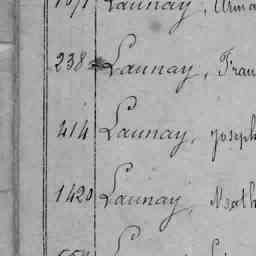 Launay,
238 Launay, Fran
414 Launay, Joseph
1420 Launay, Math